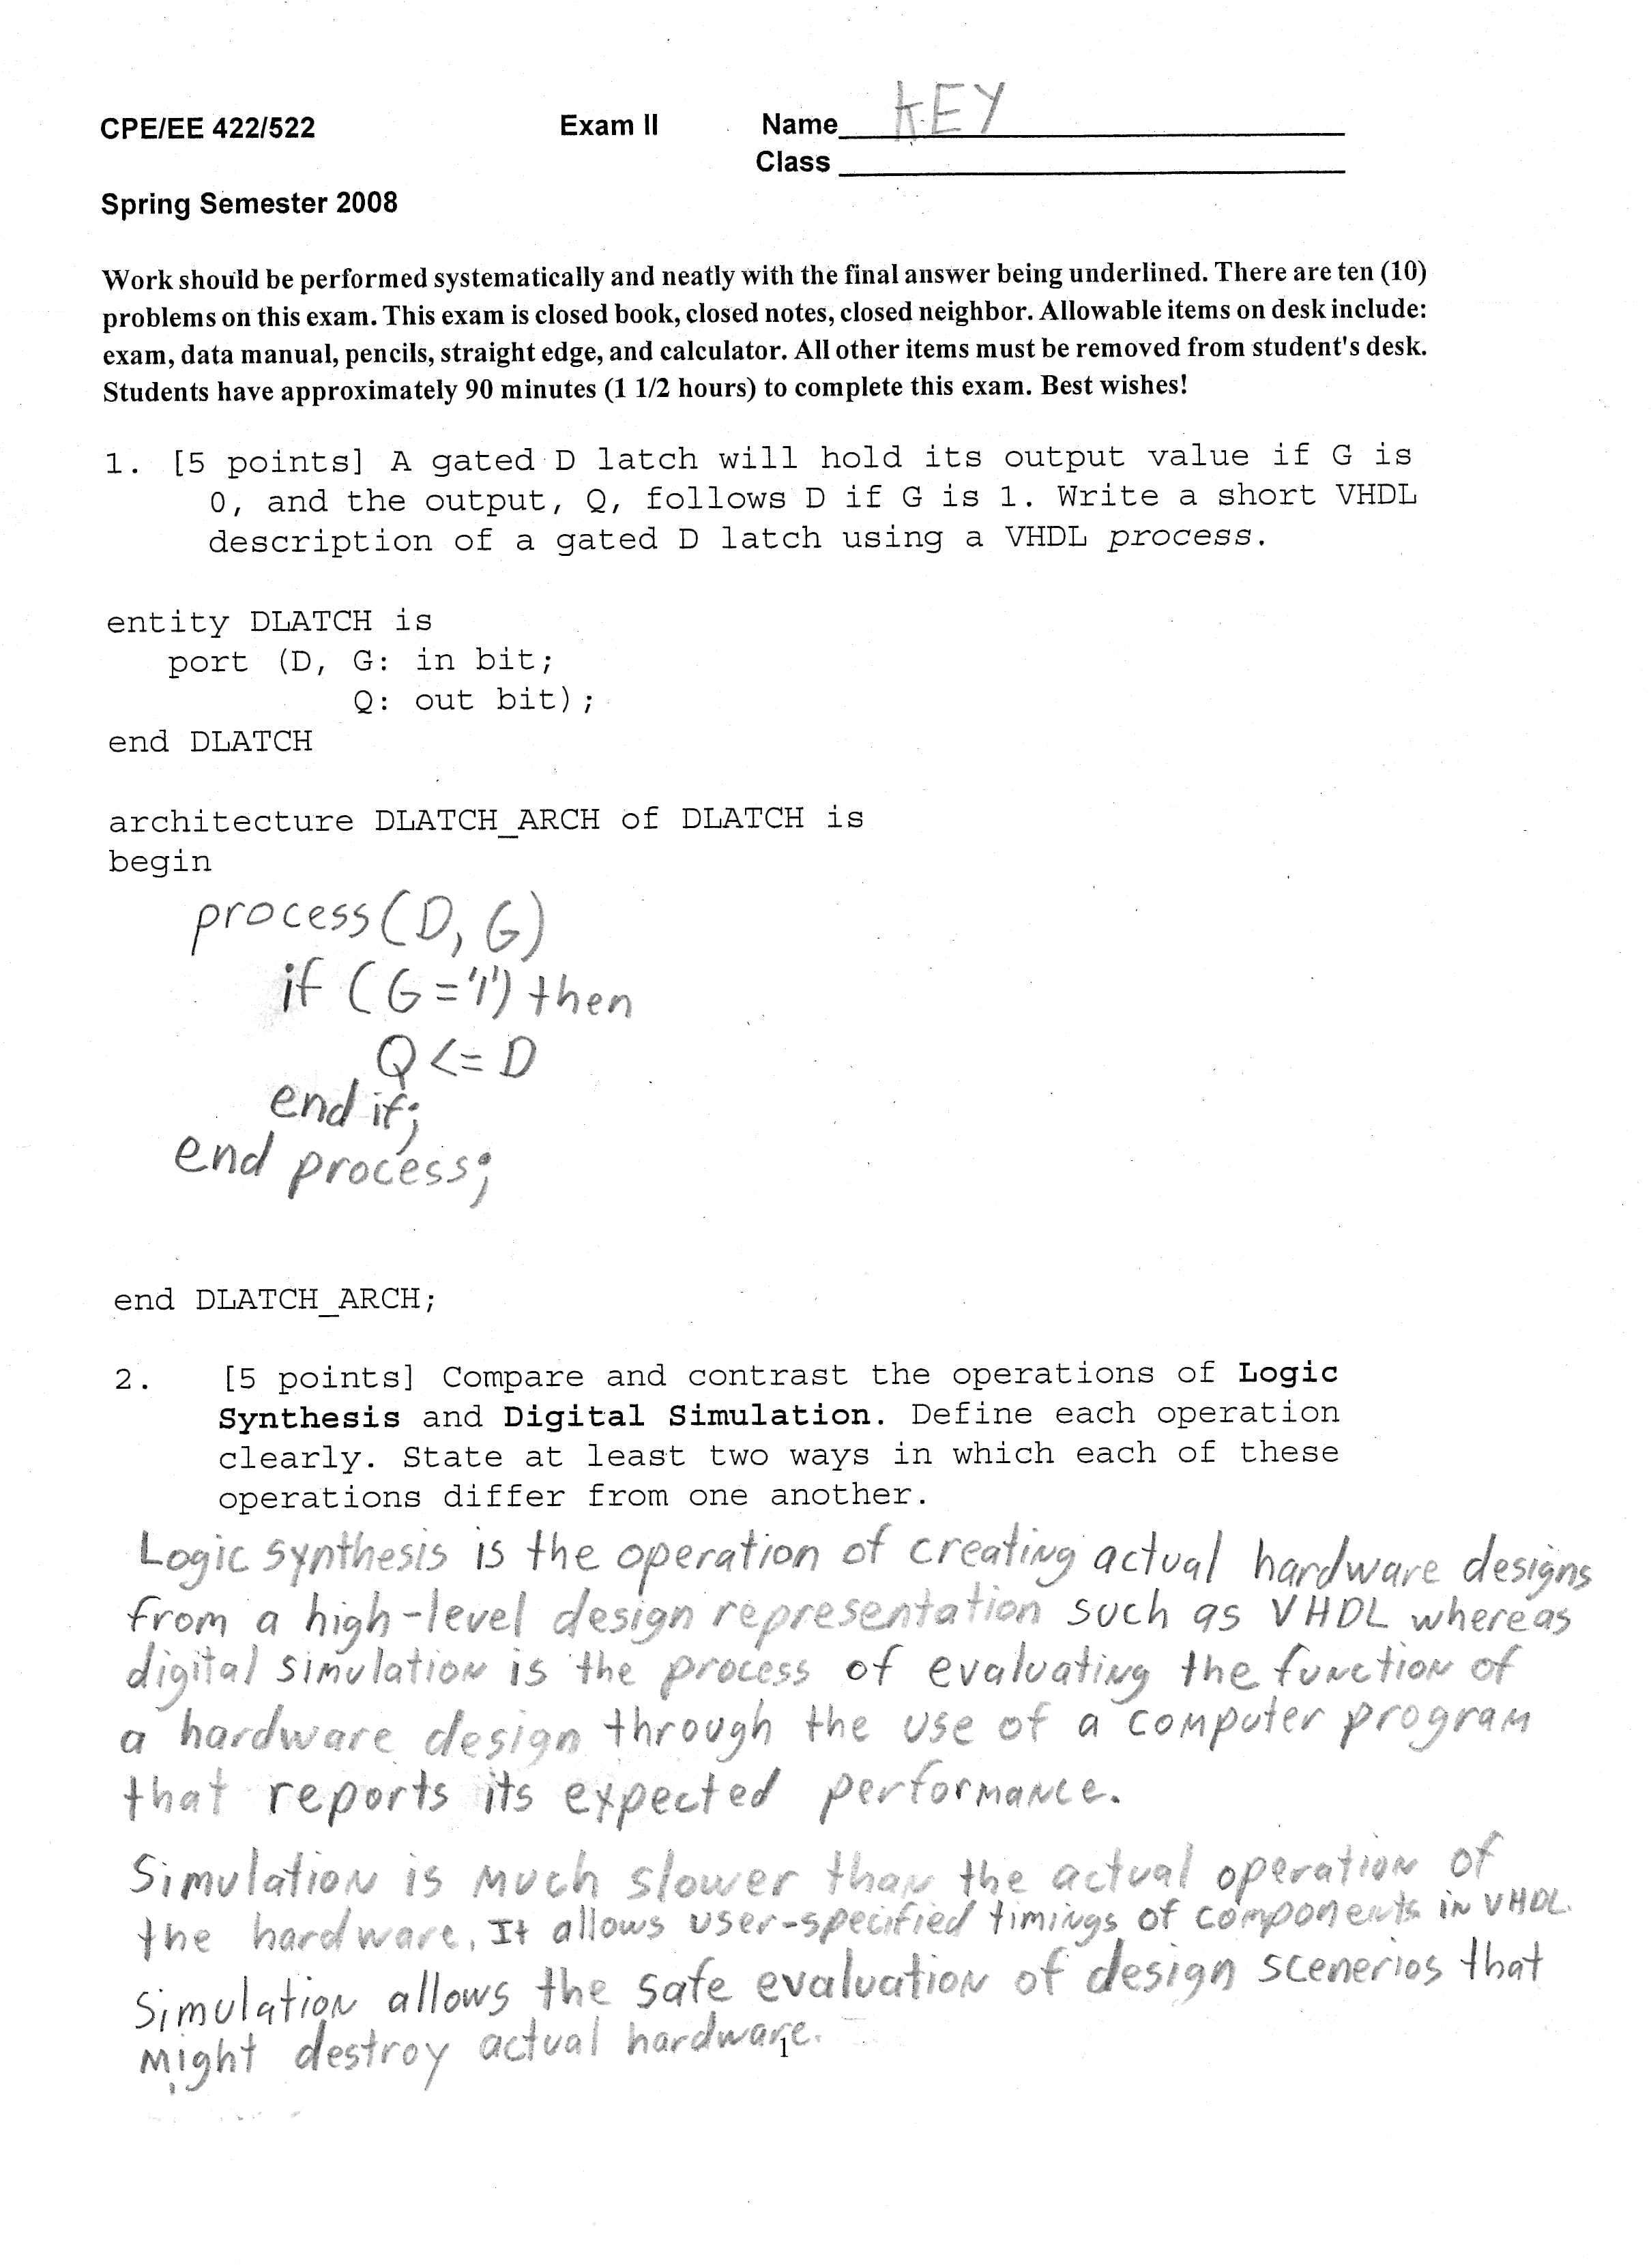 CPE/EE 422/522 Exam II Name KEY
Class
Spring Semester 2008
Work should be performed systematically and neatly with the final answer being underlined. There are ten (10)
problems on this exam. This exam is closed book, closed notes, closed neighbor. Allowable items on desk include:
exam, data manual, pencils, straight edge, and calculator. All other items must be removed from student's desk.
Students have approximately 90 minutes (1 1/2 hours) to complete this exam. Best wishes!
1. [5 points] A gated D latch will hold its output value if G is
0, and the output, Q, follows D if G is 1. Write a short VHDL
description of a gated D latch using a VHDL process.
entity DLATCH is
port (D, G: in bit;
Q: out bit);
end DLATCH
architecture DLATCH_ARCH of DLATCH is
begin
process(D, G)
if (G='1') then
Q <= D
end if;
end process;
end DLATCH_ARCH;
2. [5 points] Compare and contrast the operations of Logic
Synthesis and Digital Simulation. Define each operation
clearly. State at least two ways in which each of these
operations differ from one another.
Logic synthesis is the operation of creating actual hardware designs
from a high-level design representation such as VHDL whereas
digital simulation is the process of evaluating the function of
a hardware design through the use of a computer program
that reports its expected performance.
Simulation is much slower than the actual operation of
the hardware. It allows user-specified timings of components in VHDL.
Simulation allows the safe evaluation of design scenerios that
might destroy actual hardware.
1